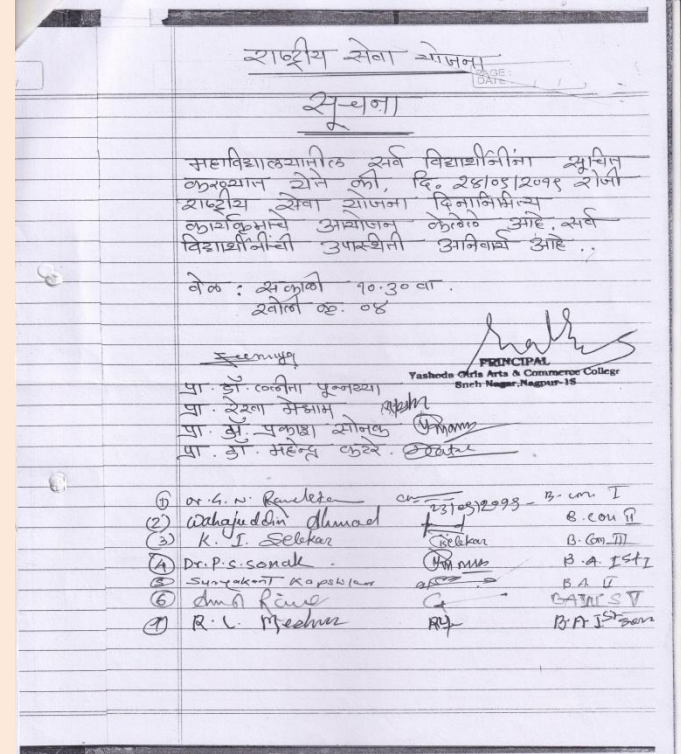 राष्ट्रीय सेवा योजना
PAGE:
DATE:
सूचना
महाविद्यालयातील सर्व विद्यार्थीनींना सूचित
करण्यात येते की, दि. २४/०९/२०१९ रोजी
राष्ट्रीय सेवा योजना दिनानिमित्य
कार्यक्रमाचे आयोजन केलेले आहे. सर्व
विद्यार्थीनींची उपास्थिती अनिवार्य आहे..
वेळ : सकाळी १०.३० वा.
खोली क्र. ०४
PRINCIPAL
Yashoda Girls Arts & Commerce College
Sneh Nagar, Nagpur-15
प्रा. डॉ. ललीता पून्नय्या
प्रा. रेश्ला मेश्राम
प्रा. डॉ. प्रकाश सोनक
प्रा. डॉ. महेन्द्र कटरे.
(1) Dr. G. N. B. Com I
(2) Wahajuddin Ahmad B. Com II
(3) K. I. Selekar Selekar B. Com III
(4) Dr. P. S. Sonak. B.A. Ist I
(5) Suryakant B A II
(6)
(7) R. L. B.A Ist sem